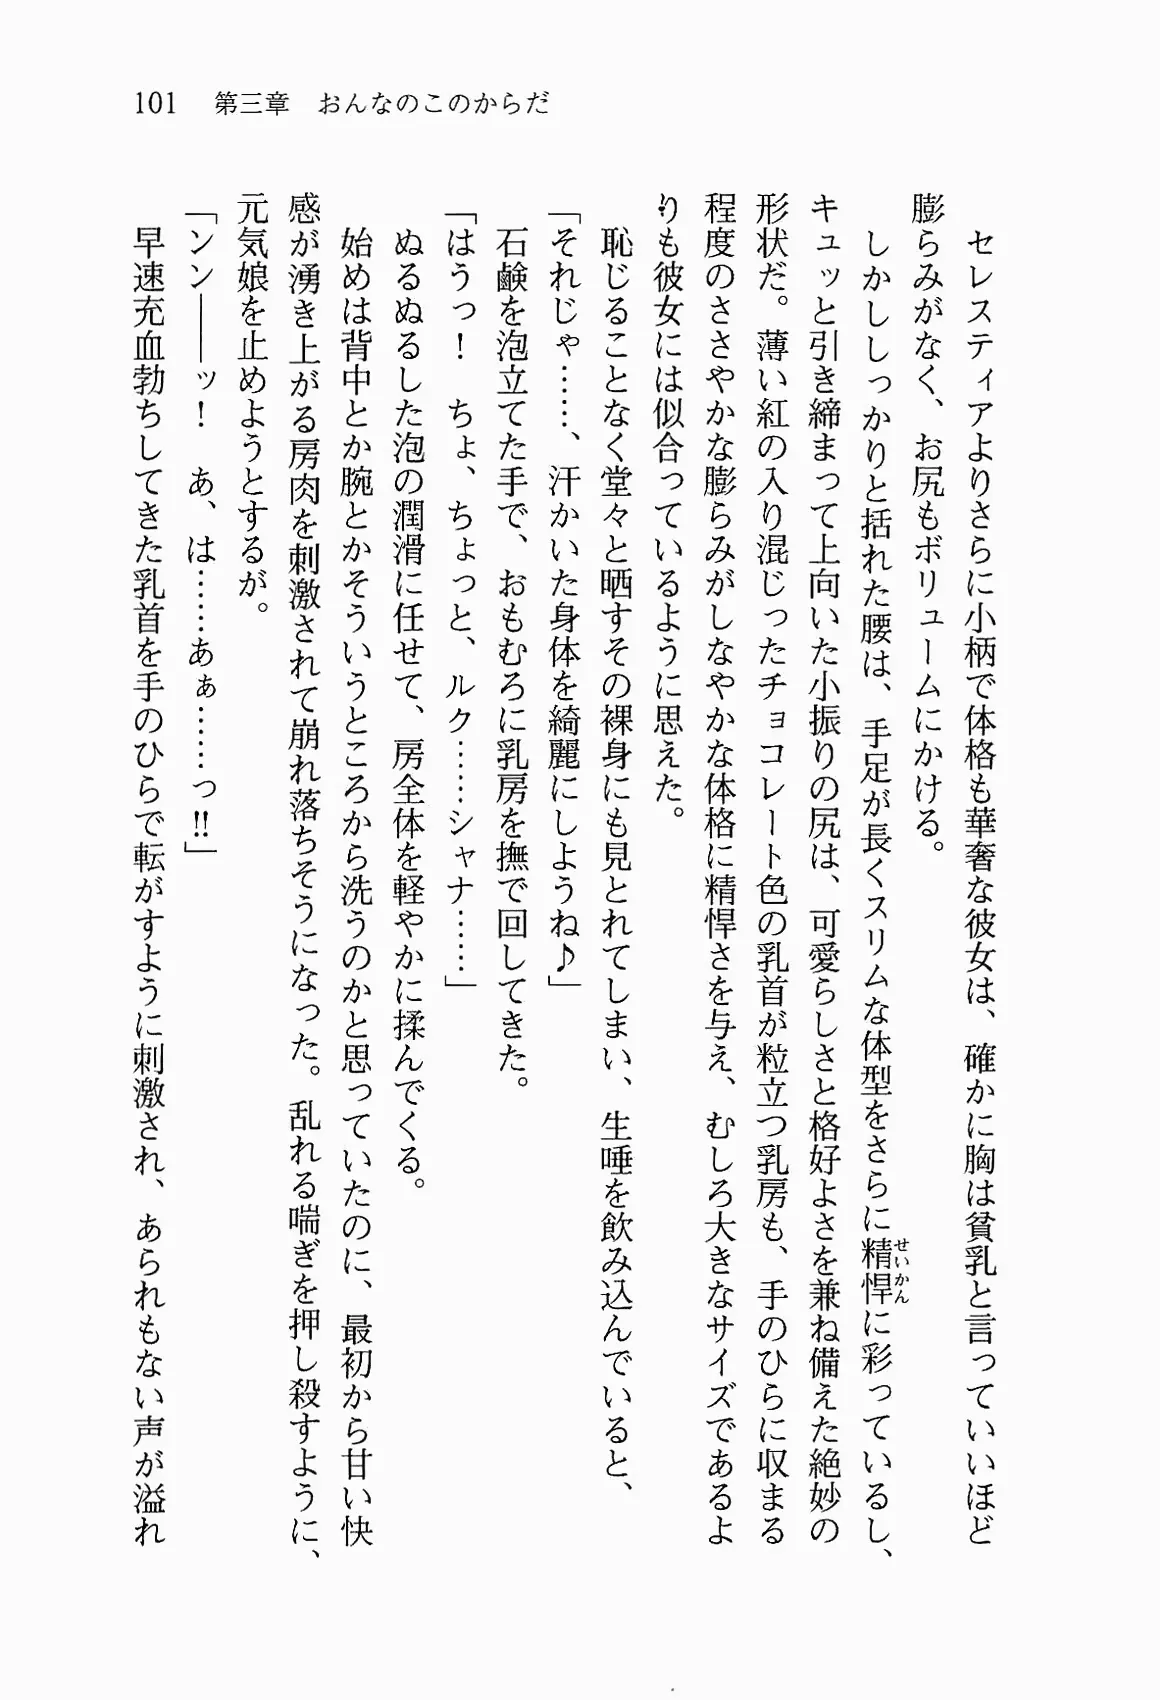 101 第三章 おんなのこのからだ
セレスティアよりさらに小柄で体格も華奢な彼女は、確かに胸は貧乳と言っていいほど
膨らみがなく、お尻もボリュームにかける。
しかししっかりと括れた腰は、手足が長くスリムな体型をさらに精悍に彩っているし、
せいかん
キュッと引き締まって上向いた小振りの尻は、可愛らしさと格好よさを兼ね備えた絶妙の
形状だ。薄い紅の入り混じったチョコレート色の乳首が粒立つ乳房も、手のひらに収まる
程度のささやかな膨らみがしなやかな体格に精悍さを与え、むしろ大きなサイズであるよ
りも彼女には似合っているように思えた。
恥じることなく堂々と晒すその裸身にも見とれてしまい、生唾を飲み込んでいると、
「それじゃ……、汗かいた身体を綺麗にしようね♪」
石鹸を泡立てた手で、おもむろに乳房を撫で回してきた。
「はうっ！　ちょ、ちょっと、ルク……シャナ……」
ぬるぬるした泡の潤滑に任せて、房全体を軽やかに揉んでくる。
始めは背中とか腕とかそういうところから洗うのかと思っていたのに、最初から甘い快
感が湧き上がる房肉を刺激されて崩れ落ちそうになった。乱れる喘ぎを押し殺すように、
元気娘を止めようとするが。
「ンン――ッ！　あ、は……あぁ……っ!!」
早速充血勃ちしてきた乳首を手のひらで転がすように刺激され、あられもない声が溢れ